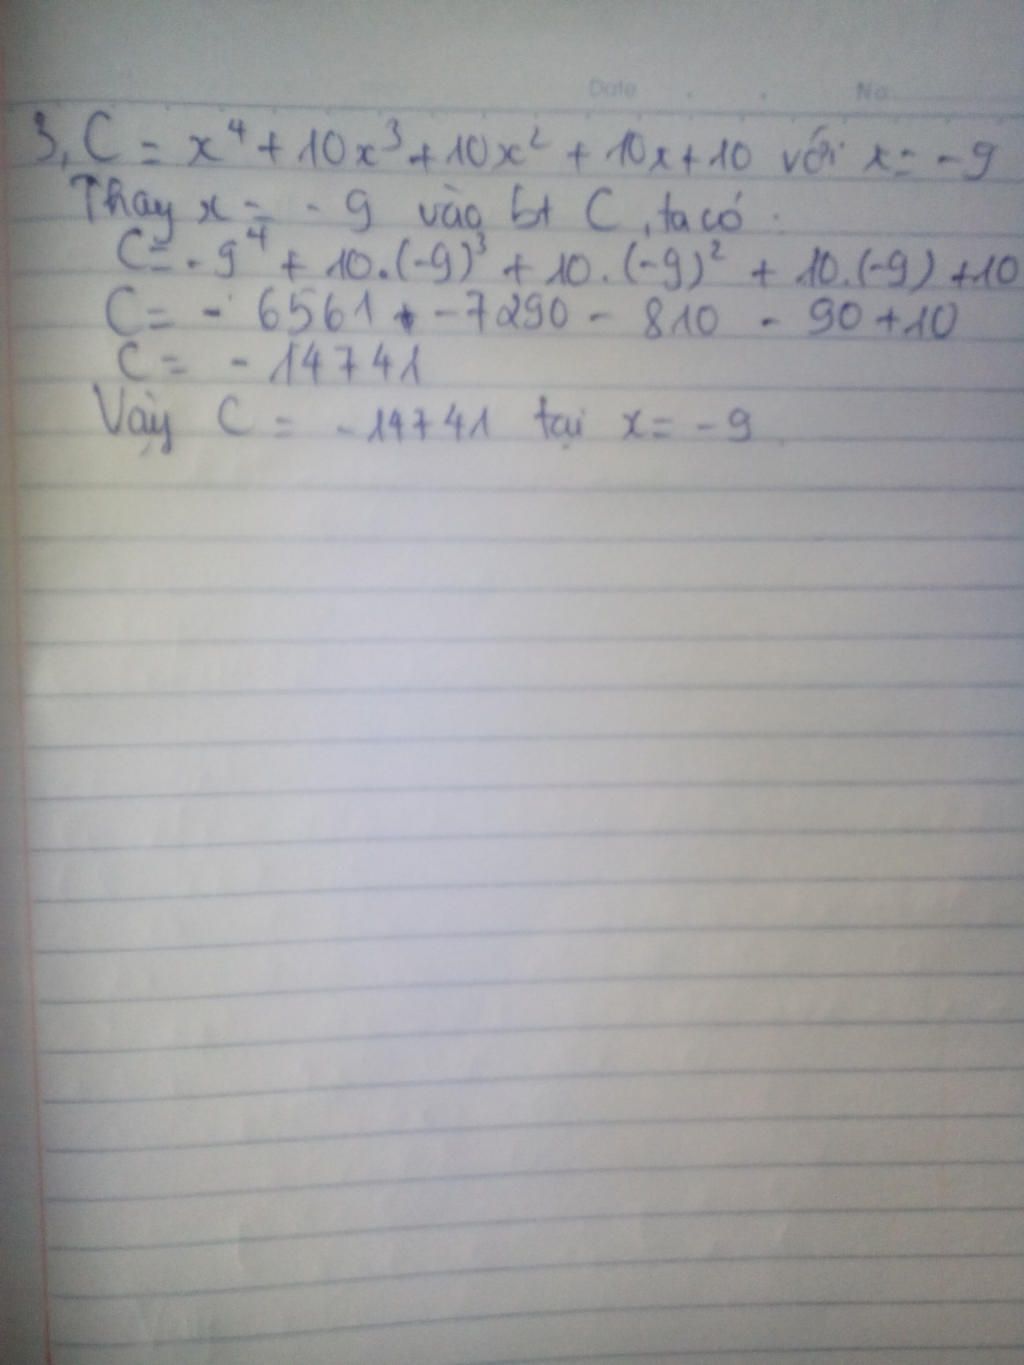 Date . . No
3, C = x⁴ + 10x³ + 10x² + 10x + 10 với x = -9
Thay x = -9 vào bt C, ta có :
C = -9⁴ + 10.(-9)³ + 10.(-9)² + 10.(-9) + 10
C = - 6561 + -7290 - 810 - 90 + 10
C = - 14741
Vậy C = -14741 tại x = -9